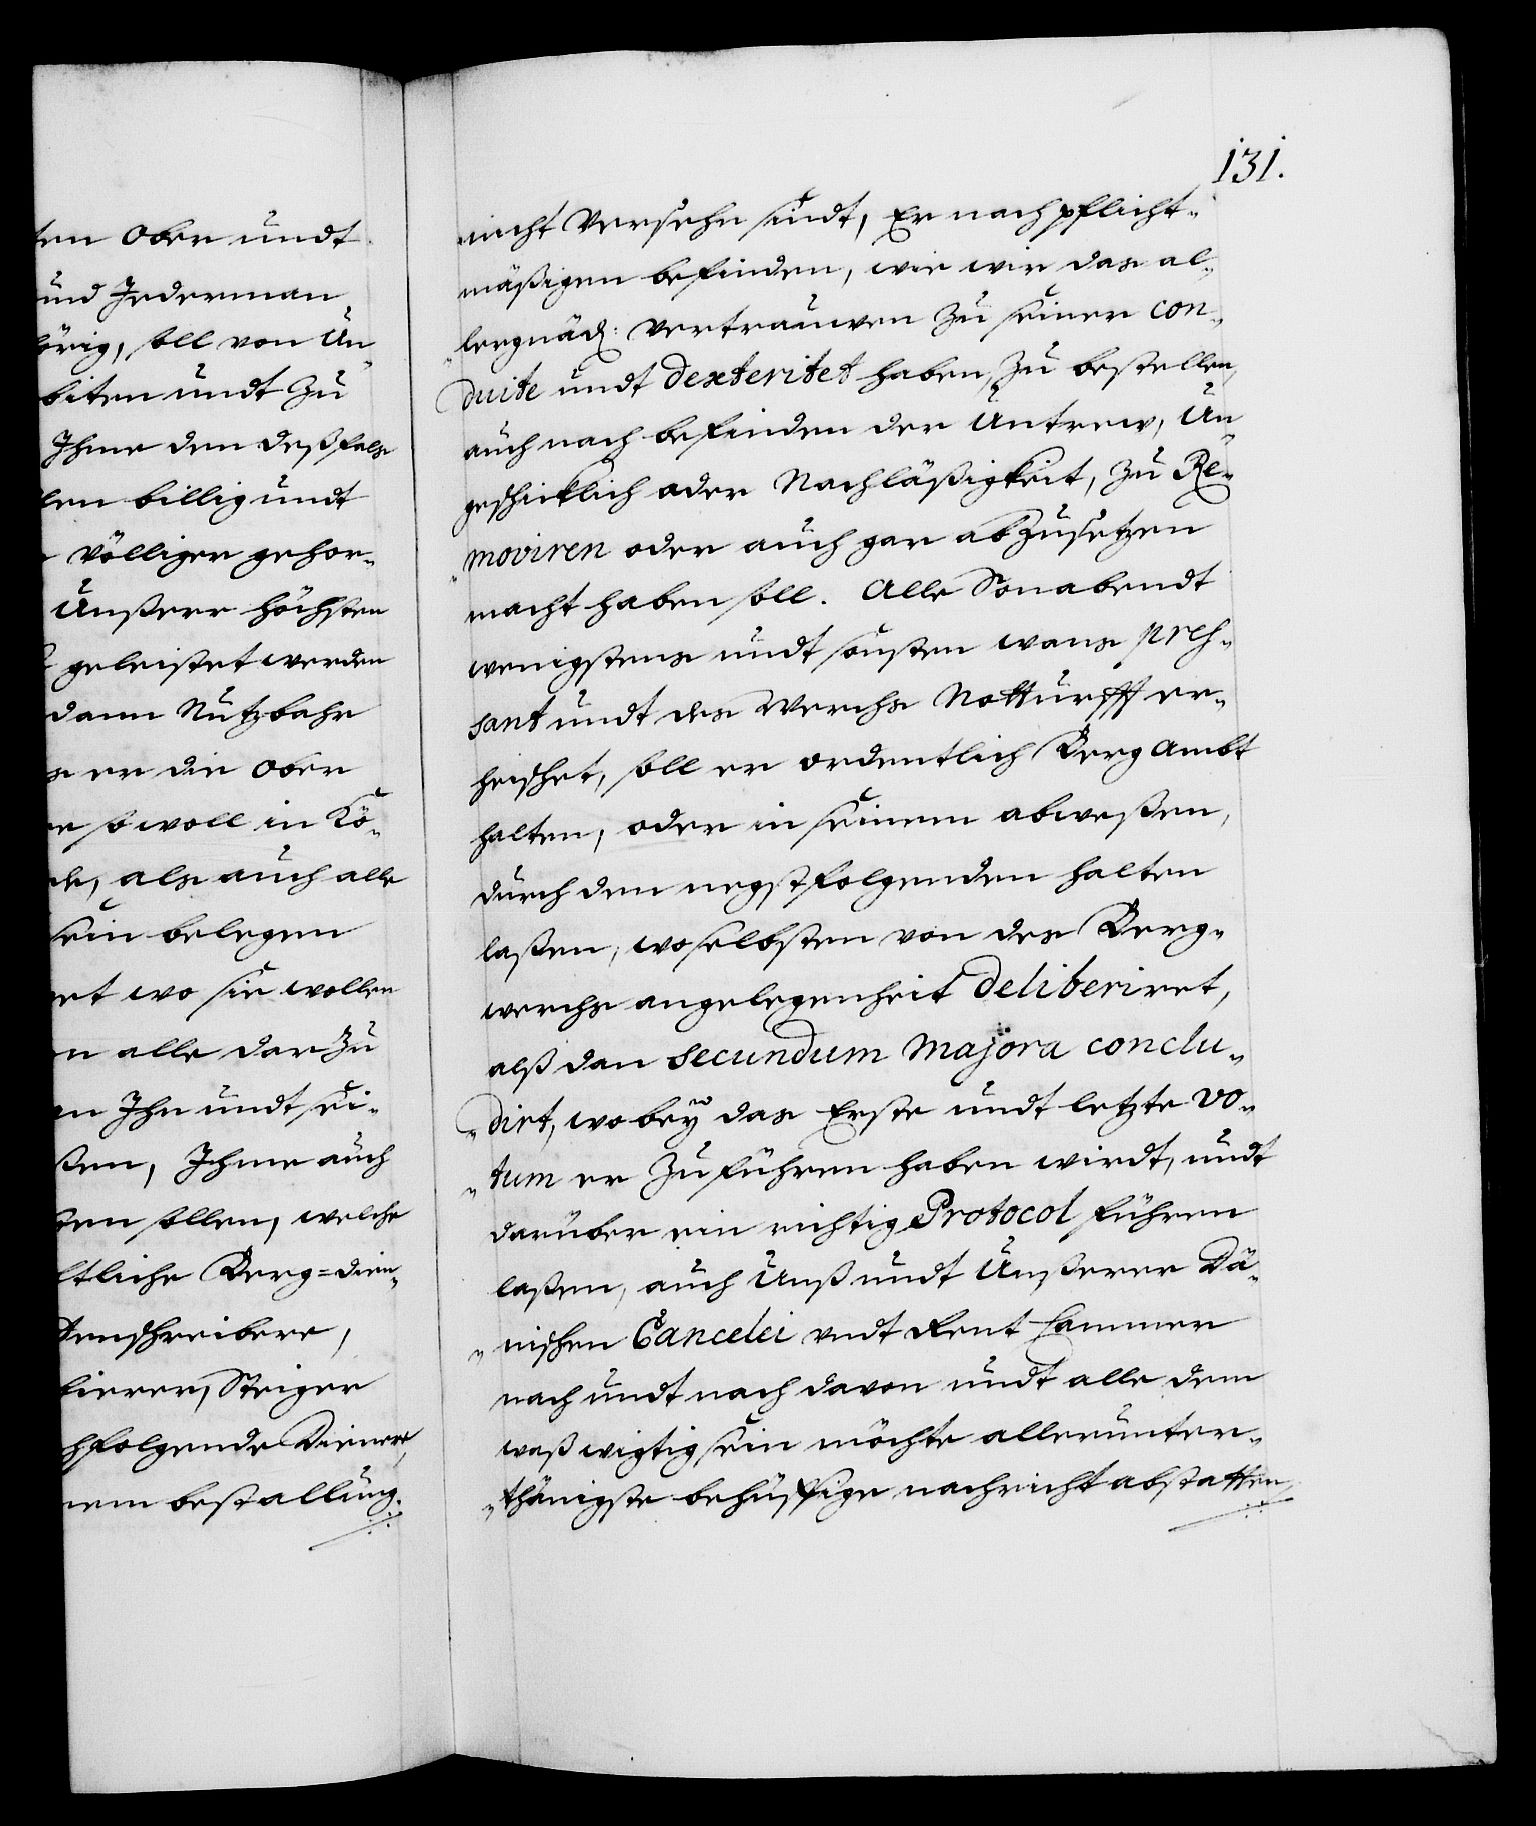 ten Ober undt
und Jederman
hörig, soll von Un-
biten undt Zu
Ihme den deßfals
len billig undt
völliger gehor-
Unßere höchsten
geleistet werden
dann Nutzbahr
er die Ober
so woll in Kö-
als auch alle
sein belegen
wo sie wollen
alle darzu
Ihn undt sei-
ßen, Ihme auch
sollen, welche
Berg=dien-
schreibere,
Steiger
folgende Dienere,
bestallung.
131.
nicht Versehn sindt, Er nach pflicht-
mäßigen befinden, wie wir das al-
lergnäd: Vertrauwen Zu seiner con-
duite undt dexteritet haben, Zu bestellen,
auch nach befinden der Untrew, Un-
geschicklich oder Nachläßigkeit, Zu Re-
moviren oder auch gar abZusetzen
macht haben soll. Alle Sonabendt
wenigstens undt sonsten wans pres-
sant undt des Werchs Notturfft er-
heischet, soll er ordentlich Berg Ambt
halten, oder in seinem abweßen,
durch den negstfolgenden halten
laßen, woselbsten von des Berg-
werchs angelegenheit deliberiret,
alß dan secundum majora conclu-
dirt, wobeÿ das Erste undt letzte vo-
tum er Zu führen haben wirdt, undt
darüber ein richtig Protocol führen
laßen, auch Unß undt Unßerer Dä-
nischen Cancelei undt Rent Cammer
nach undt nach davon undt alle dem
waß wigtig sein möchte allerunter-
thänigste behuffige nachricht abstatten,